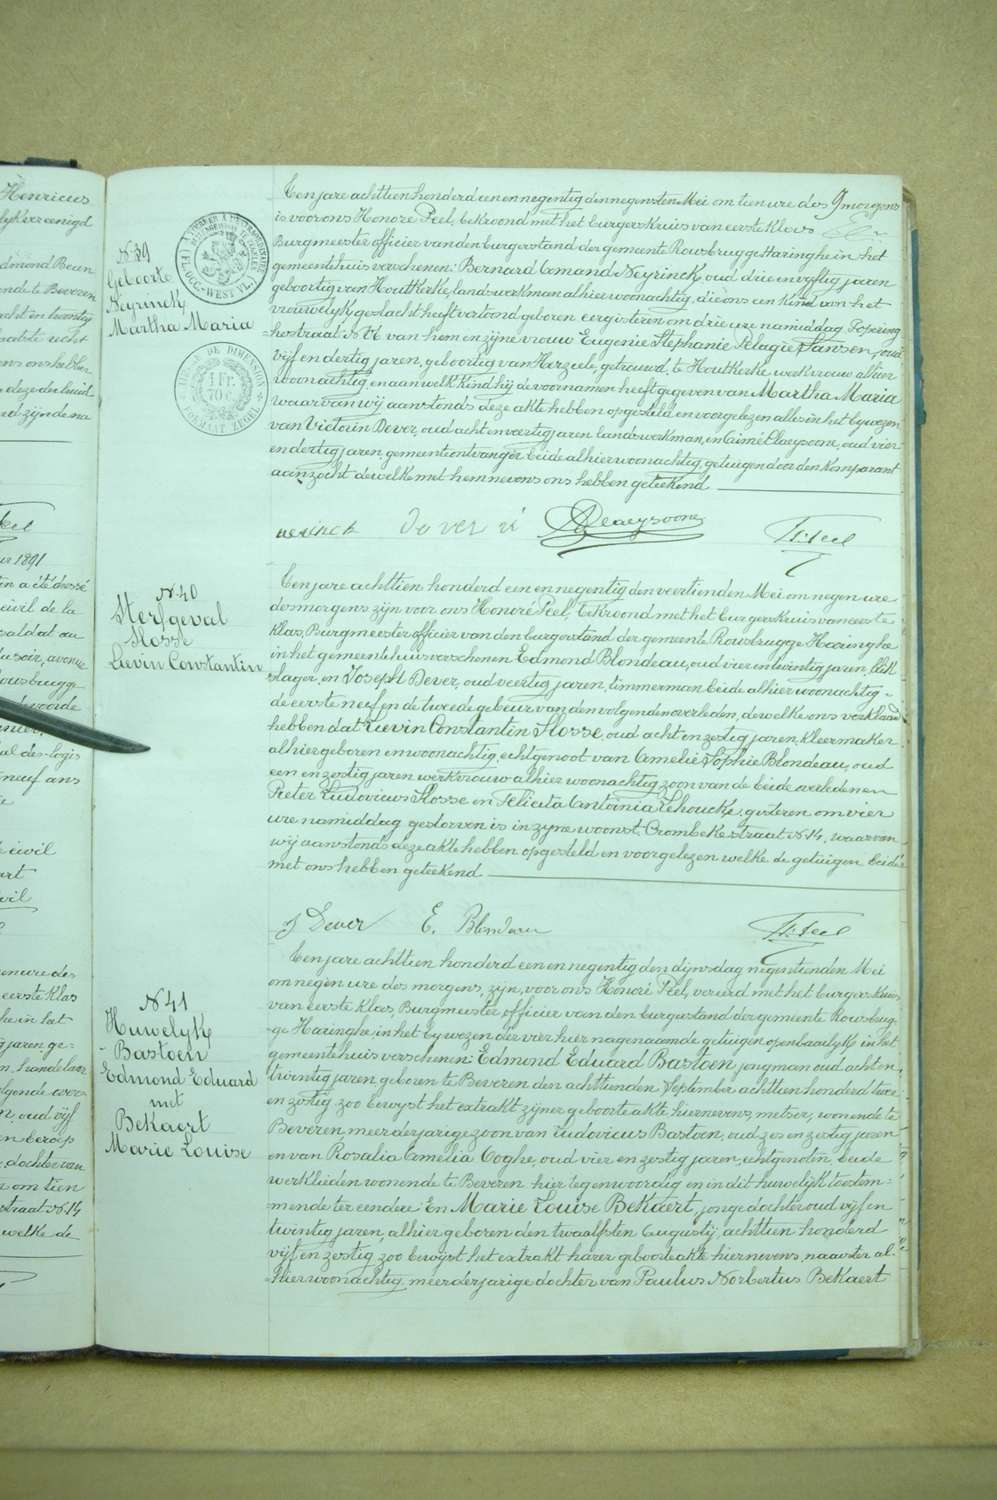 N. 39
Geboorte
Neyrinck
Martha Maria
1 Fr.
70 c.
Een jare achttien honderd een en negentig den negensten Mei om tien ure des 9 morgens
is voor ons Honoré Peel, bekroond met het burgerskruis van eerste klas
Burgmeester officier van den burgerstand der gemeente Rousbrugge Haringhe in het
gemeentehuis verschenen: Bernard Amand Neyrinck, oud drie en vyftig jaren
geboortig van Houtkerke, landswerkman alhier woonachtig, die ons een kind van het
vrouwelyk geslacht heeft vertoond geboren eergisteren om drie ure namiddag Popering
hestraat N. 16 van hem en zijne vrouw Eugenie Stephanie Pelagie Jansen, oud
vijf en dertig jaren, geboortig van Herzeele, getrouwd, te Houtkerke werkvrouw alhier
woonachtig en aan welk kind hij de voornamen heeft gegeven van Martha Maria
waarvan wij aanstonds deze akte hebben opgesteld en voorgelezen alles in het bywezen
van Victorin Dever, oud acht en veertig jaren landswerkman, en Aimé Claeysoone, oud vier
en dertig jaren, gemeenteontvanger beide alhier woonachtig, getuigen door den komparant
aanzocht dewelke met hem nevens ons hebben geteekend
neirick Dever vi Claeysoone H. Peel
N. 40
Sterfgeval
Slosse
Lievin Constantin
Een jare achttien honderd een en negentig den veertienden Mei om negen ure
des morgens zijn voor ons Honoré Peel, bekroond met het burgerskruis van eerste
klas, Burgmeester officier van den burgerstand der gemeente Rousbrugge Haringhe
in het gemeentehuis verschenen Edmond Blondeau, oud vier en twintig jaren, blik
slager, en Joseph Dever, oud veertig jaren, timmerman beide alhier woonachtig
de eerste neef en de tweede gebeur van den volgenden overleden, dewelke ons verklaard
hebben dat Lievin Constantin Slosse, oud acht en zestig jaren, kleermaker
alhier geboren en woonachtig, echtgenoot van Amelie Sophie Blondeau, oud
een en zestig jaren werkvrouw alhier woonachtig zoon van de beide overledenen
Pieter Ludovicus Slosse en Felicita Antoinia Lehoucke, gisteren om vier
ure namiddag gestorven is in zyne woonst, Crombekestraat N. 14, waarvan
wij aanstonds deze akte hebben opgesteld en voorgelezen welke de getuigen beide
met ons hebben geteekend
J Dever E. Blondeau H. Peel
N. 41
Huwelyk
Bastoen
Edmond Eduard
met
Bekaert
Marie Louise
Een jare achttien honderd een en negentig den dijnsdag negentienden Mei
om negen ure des morgens, zyn, voor ons Honoré Peel, vereerd met het burgerskruis
van eerste klas, Burgmeister officier van den burgerstand der gemeente Rousbrug-
ge Haringhe, in het bywezen der vier hier nagenaamde getuigen openbaarlyk in het
gemeentehuis verschenen: Edmond Eduard Bastoen, jongman oud acht en
twintig jaren, geboren te Beveren den achttienden September achttien honderd twee
en zestig zoo bewyst het extrakt zijner geboorteakte hiernevens, metser, wonende te
Beveren meerderjarige zoon van Ludovicus Bastoen, oud zes en zestig jaren
en van Rosalia Amelia Coghe, oud vier en zestig jaren, echtgenoten, beide
werklieden wonende te Beveren hier tegenwoordig en in dit huwelijk toestem-
mende ter eendere: En Marie Louise Bekaert, jonge dochter oud vijf en
twintig jaren, alhier geboren den twaalfsten Augustij achttien honderd
vijf en zestig, zoo bewyst het extrakt harer geboorteakte hiernevens, naaister al-
hier woonachtig, meerderjarige dochter van Paulus Norbertus Bekaert